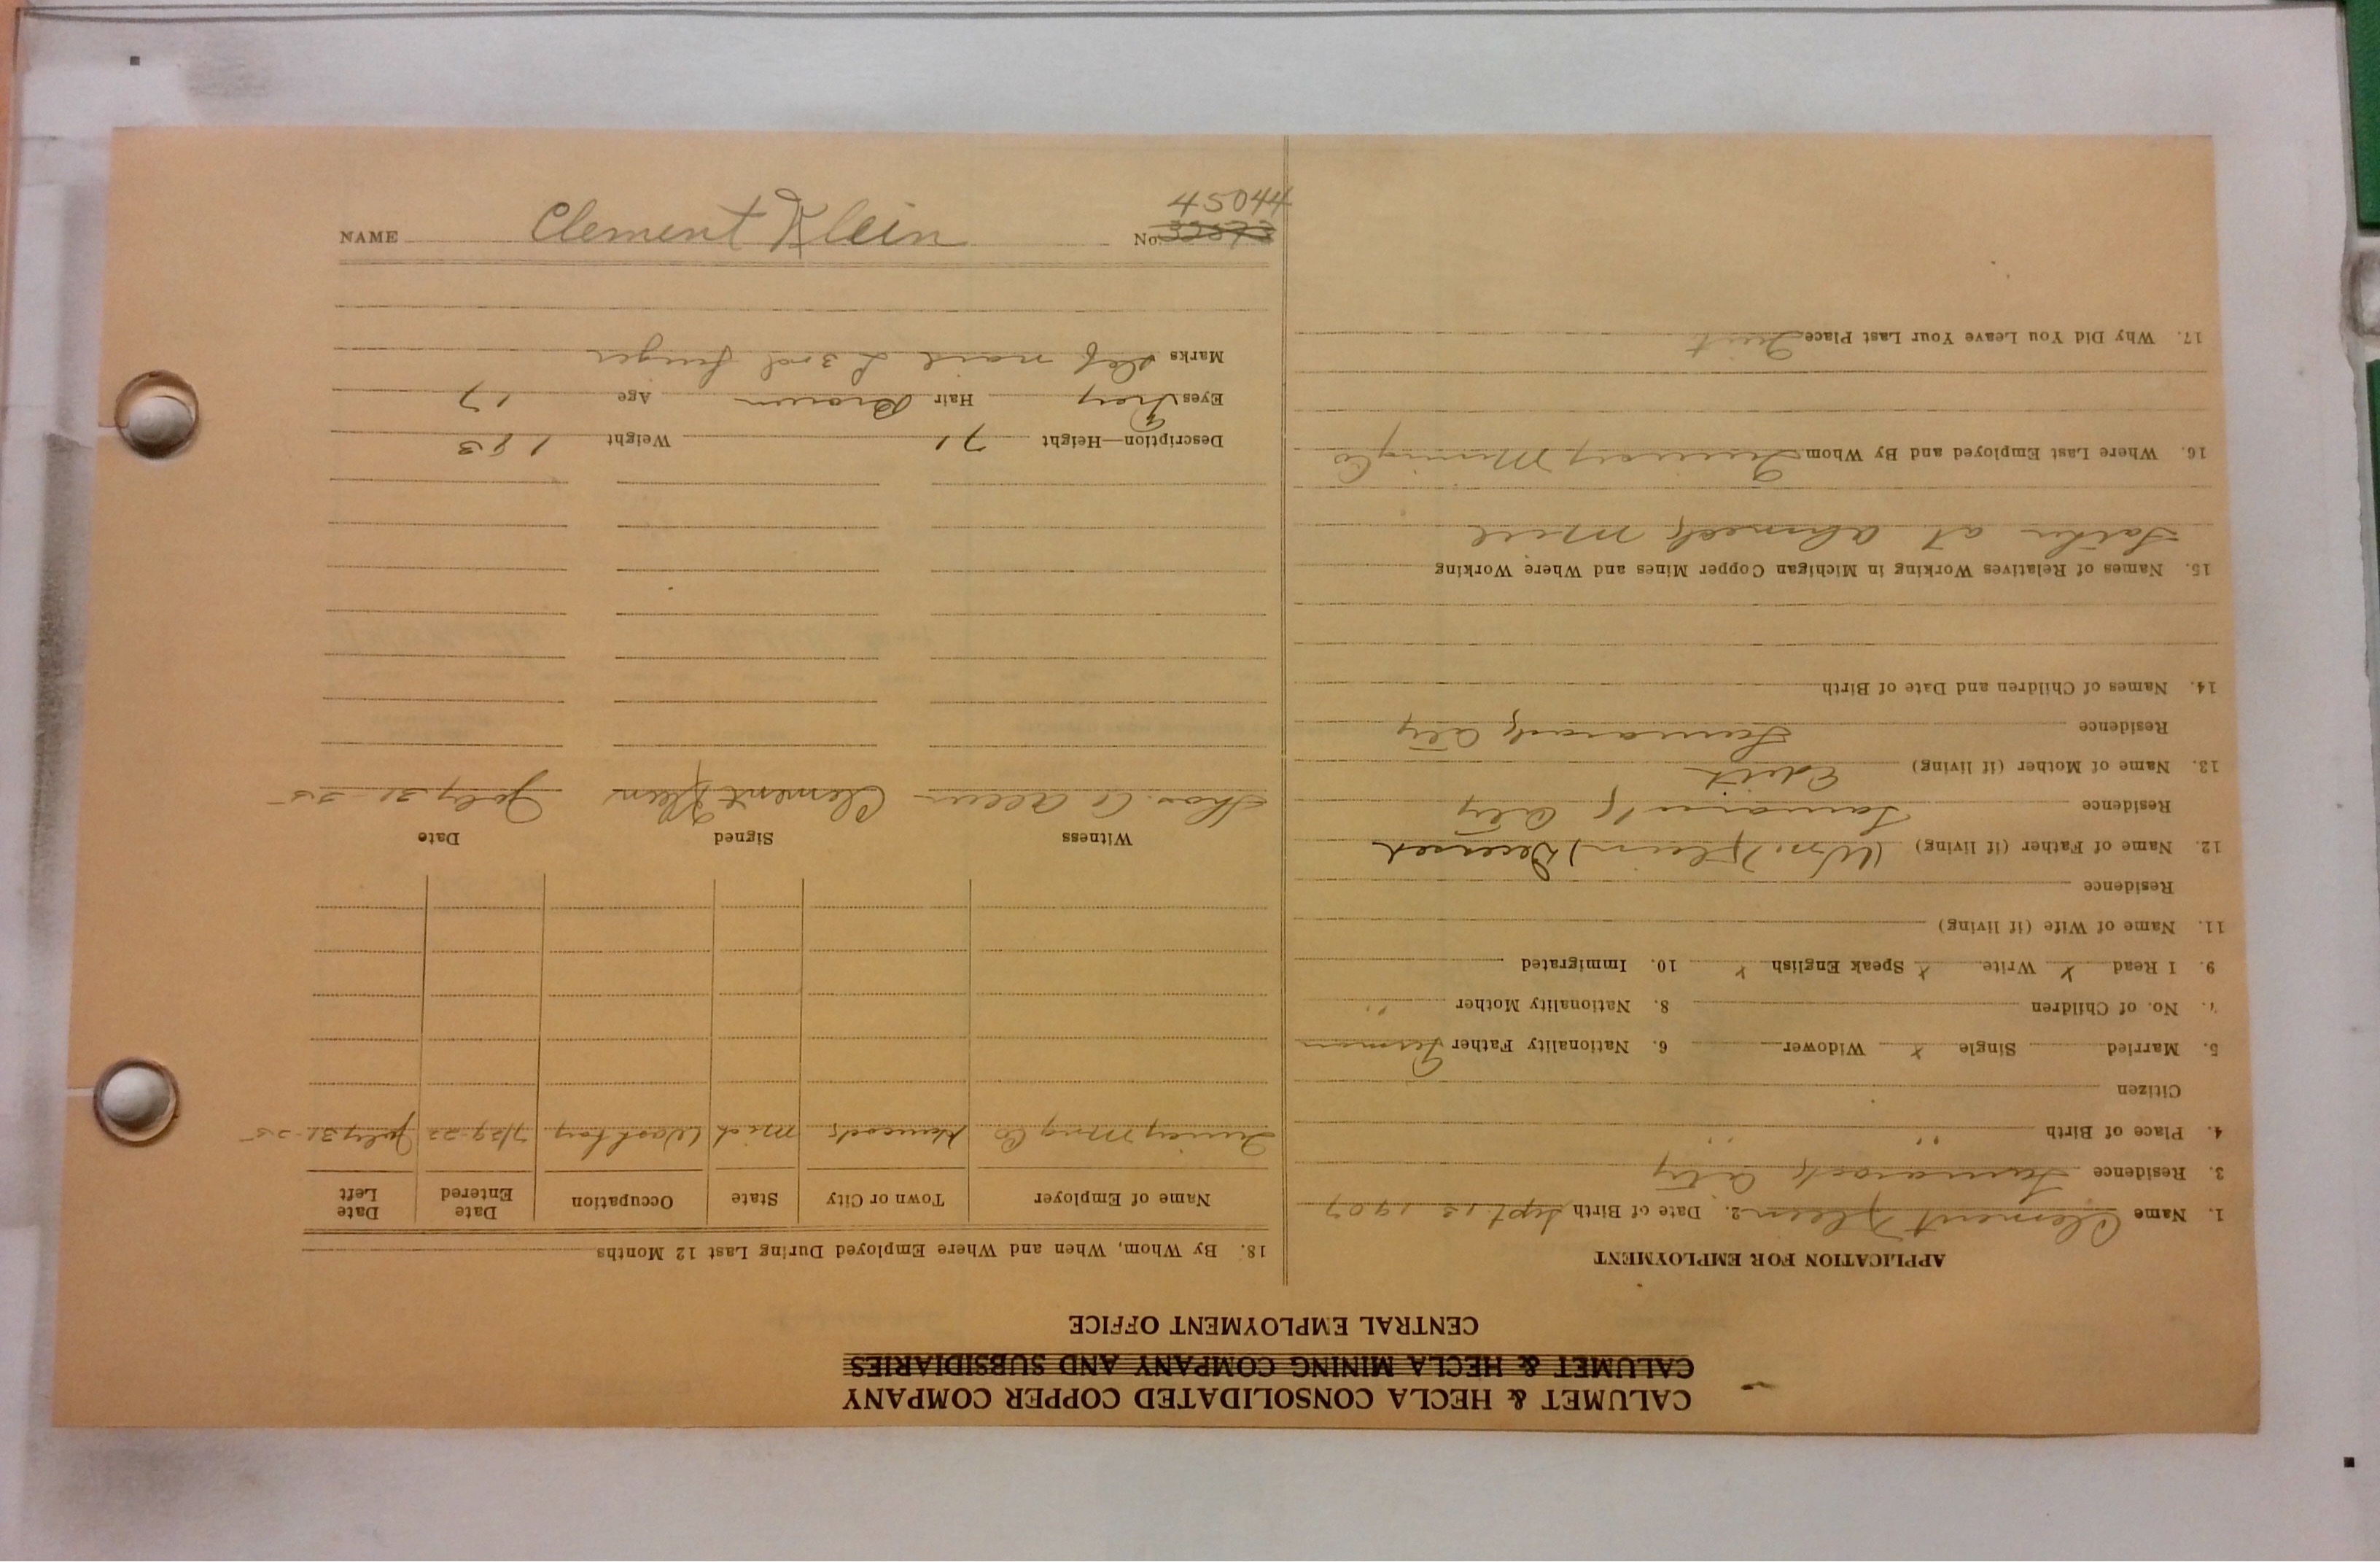 CALUMET & HECLA CONSOLIDATED COPPER COMPANY
CALUMET & HECLA MINING COMPANY AND SUBSIDIARIES
CENTRAL EMPLOYMENT OFFICE
APPLICATION FOR EMPLOYMENT
1. Name Clement Klein 2. Date of Birth Sept 13 1907
3. Residence Tamarack City
4. Place of Birth " "
Citizen
5. Married Single x Widower 6. Nationality Father German
7. No. of Children 8. Nationality Mother "
9. I Read x Write x Speak English x 10. Immigrated
11. Name of Wife (if living)
Residence
12. Name of Father (if living) (Wm. Klein) Deceased
Residence Tamarack City
13. Name of Mother (if living) Edith
Residence Tamarack City
14. Names of Children and Date of Birth
15. Names of Relatives Working in Michigan Copper Mines and Where Working
Father at Ahmeek Mill
16. Where Last Employed and By Whom Quincy Mining Co
17. Why Did You Leave Your Last Place Quit
18. By Whom, When and Where Employed During Last 12 Months
Name of Employer Town or City State Occupation Date Entered Date Left
Quincy Mng Co Hancock Mich Wash boy 7/29-22 July 31-25
Witness Signed Date
Thos. A Allen Clement Klein July 31-25
Description—Height 71 Weight 183
Eyes Gray Hair Brown Age 17
Marks Def nail L 3rd finger
NAME Clement Klein No. 32573
45044